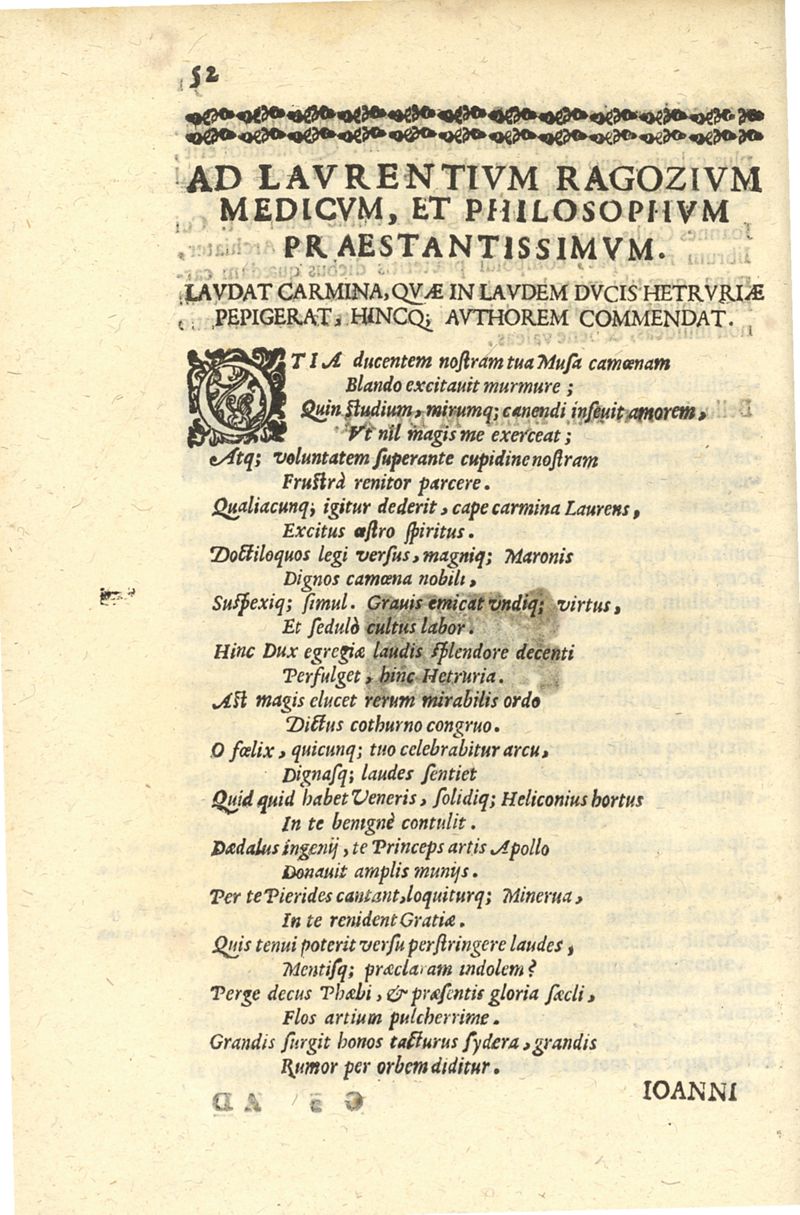 52
AD LAVRENTIVM RAGOZIVM
MEDICVM, ET PHILOSOPHVM
PRAESTANTISSIMVM.
LAVDAT CARMINA, QVÆ IN LAVDEM DVCIS HETRVRIÆ
PEPIGERAT, HINCQ; AVTHOREM COMMENDAT.
OTIA ducentem noſtram tua Muſa camœnam
Blando excitauit murmure ;
Quin ſtudium, mirumq; canendi inſeuit amorem,
Vt nil magis me exerceat ;
Atq; voluntatem ſuperante cupidine noſtram
Fruſtrà renitor parcere.
Qualiacunq; igitur dederit, cape carmina Laurens,
Excitus œſtro ſpiritus.
Doctiloquos legi verſus, magniq; Maronis
Dignos camœna nobili,
Suſpexiq; ſimul. Grauis emicat vndiq; virtus,
Et ſedulò cultus labor.
Hinc Dux egregiæ laudis ſplendore decenti
Perfulget, hinc Hetruria.
Aſt magis elucet rerum mirabilis ordo
Dictus cothurno congruo.
O fœlix, quicunq; tuo celebrabitur arcu,
Dignaſq; laudes ſentiet
Quid quid habet Veneris, ſolidiq; Heliconius hortus
In te benignè contulit.
Dædalus ingenij, te Princeps artis Apollo
Donauit amplis munijs.
Per te Pierides cantant, loquiturq; Minerua,
In te renident Gratiæ.
Quis tenui poterit verſu perſtringere laudes,
Mentiſq; præclaram indolem?
Perge decus Phæbi, & præſentis gloria ſæcli,
Flos artium pulcherrime.
Grandis ſurgit honos tacturus ſydera, grandis
Rumor per orbem diditur.
IOANNI